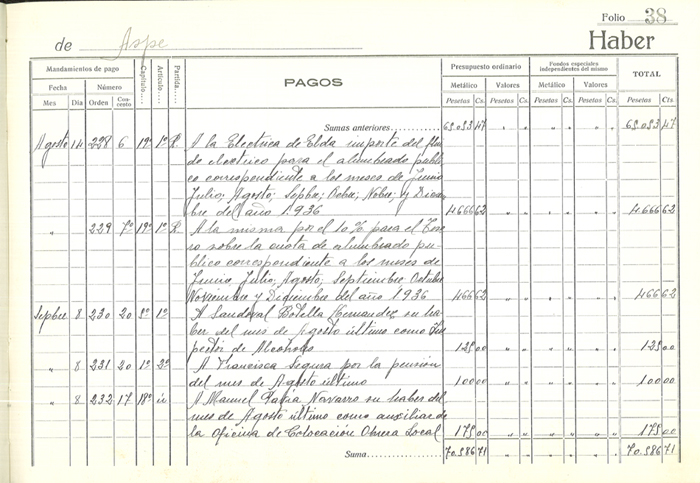 Folio 38
de Aspe Haber
Mandamientos de pago Capítulo.... Artículo.... Partida.... PAGOS Presupuesto ordinario Fondos especiales independientes del mismo TOTAL
Fecha Número Metálico Valores Metálico Valores
Mes Día Orden Concepto Pesetas Cs. Pesetas Cs. Pesetas Cs. Pesetas Cs. Pesetas Cts
Sumas anteriores 65.053 47 " " " " " " 65.053 47
Agosto 14 228 6 19º 1º R. A la Electrica de Elda importe del flui
do electrico para el alumbrado públi
co correspondiente a los meses de Junio
Julio; Agosto; Sepbre; Ocbre; Nobre; y Diciem
bre del año 1.936 4.666 62 " " " " " " 4.666 62
" 229 7º 19º 1º R. A la misma por el 10% para el Teso
ro sobre la cuota de alumbrado pú
blico correspondiente a los meses de
Junio, Julio, Agosto, Septiembre Octubre
Noviembre y Diciembre del año 1.936 466 62 " " " " " " 466 62
Sepbre 8 230 20 1º A Sandoval Botella Hernandez su ha
ber del mes de Agosto último como Ins
pector de Alcoholes 125 00 " " " " " " 125 00
" 8 231 20 1º 2º A Francisca Segura por la pensión
del mes de Agosto último 100 00 " " " " " " 100 00
" 8 232 17 18º A Manuel Navarro su haber del
mes de Agosto último como auxiliar de
la Oficina de Colocación Obrera Local 175 00 " " " " " " 175 00
Suma 70.586 71 " " " " " " 70.586 71